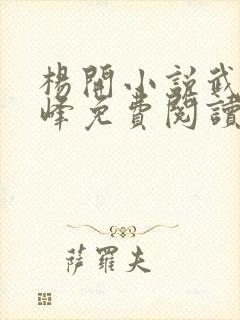 楊開小說武
峰免費閱讀
薩羅夫